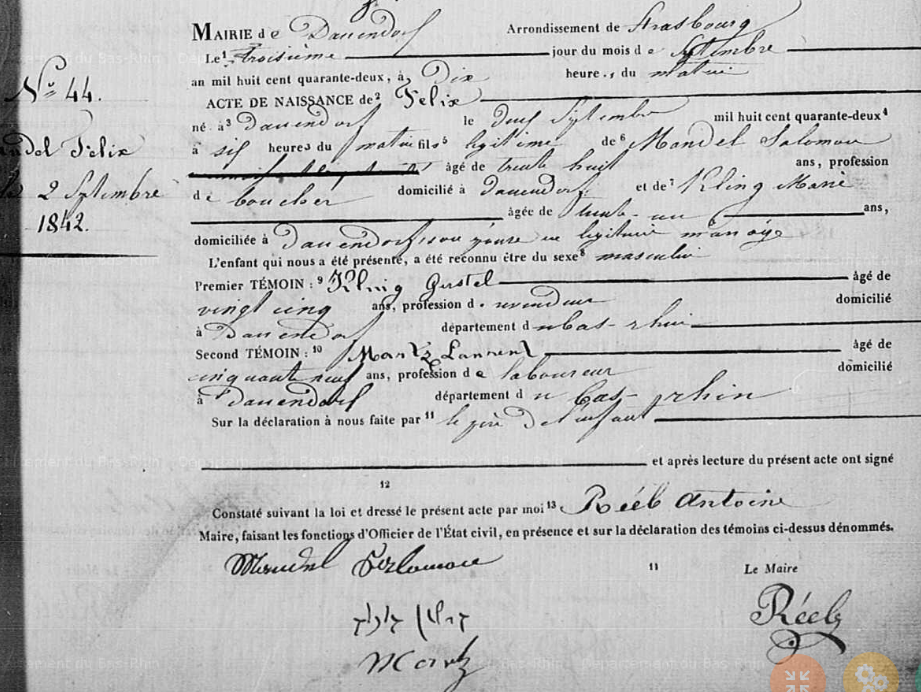 MAIRIE de Dauendorf Arrondissement de Strasbourg
Le¹ troisième jour du mois de Septembre
an mil huit cent quarante-deux, à Dix heures, du matin
No. 44.
ACTE DE NAISSANCE de² Felix
né à³ Dauendorf le deux Septembre mil huit cent quarante-deux⁴
Mandel Felix
à six heures du matin fils⁵ légitime de⁶ Mandel Salomon
âgé de trente huit ans, profession
le 2 Septembre
1842.
de boucher domicilié à Dauendorf et de⁷ Kling Marie
âgée de trente-un ans,
domiciliée à Dauendorf son épouse en légitime mariage
L'enfant qui nous a été présenté, a été reconnu être du sexe⁸ masculin
Premier TÉMOIN : ⁹ Kling Gustel âgé de
vingt cinq ans, profession de vendeur domicilié
à Dauendorf département du bas-rhin
Second TÉMOIN : ¹⁰ Martz Laurent âgé de
cinquante neuf ans, profession de laboureur domicilié
à Dauendorf département du bas-rhin
Sur la déclaration à nous faite par ¹¹ le père de l'enfant
et après lecture du présent acte ont signé
12
Constaté suivant la loi et dressé le présent acte par moi ¹³ Réeb Antoine
Maire, faisant les fonctions d'Officier de l'État civil, en présence et sur la déclaration des témoins ci-dessus dénommés.
Mandel Salomon
11 Le Maire
Réeb
Martz
Département du Bas-Rhin